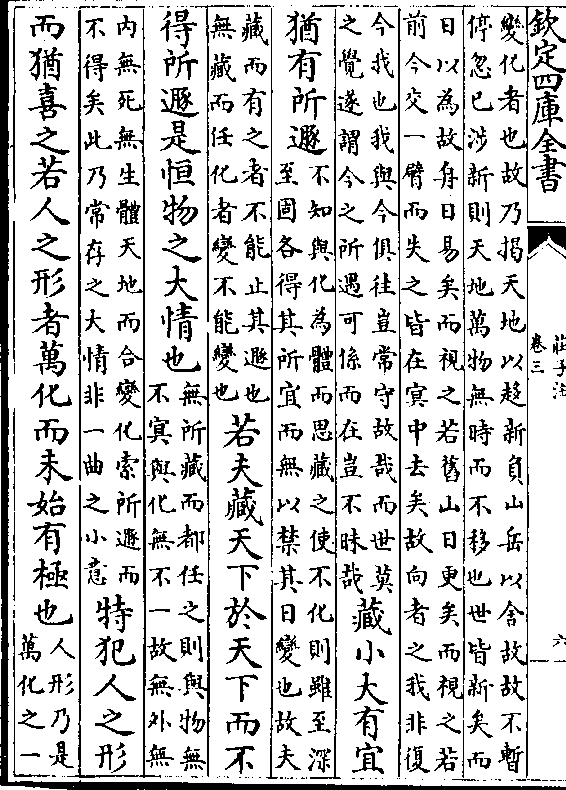 欽定四庫全書
莊子注
卷三
六
變化者也故乃揭天地以趍新負山岳以舍故故不暫
停忽已涉新則天地萬物無時而不移也世皆新矣而
日以為故舟日易矣而視之若舊山日更矣而視之若
前今交一臂而失之皆在冥中去矣故向者之我非復
今我也我與今俱往豈常守故哉而世莫
之覺遂謂今之所遇可係而在豈不昧哉
藏小大有宜
猶有所遯
不知與化為體而思藏之使不化則雖至深
至固各得其所宜而無以禁其日變也故夫
藏而有之者不能止其遯也
無藏而任化者變不能變也
若夫藏天下於天下而不
得所遯是恒物之大情也
無所藏而都任之則與物無
不冥與化無不一故無外無
内無死無生體天地而合變化索所遯而
不得矣此乃常存之大情非一曲之小意
特犯人之形
而猶喜之若人之形者萬化而未始有極也
人形乃是
萬化之一